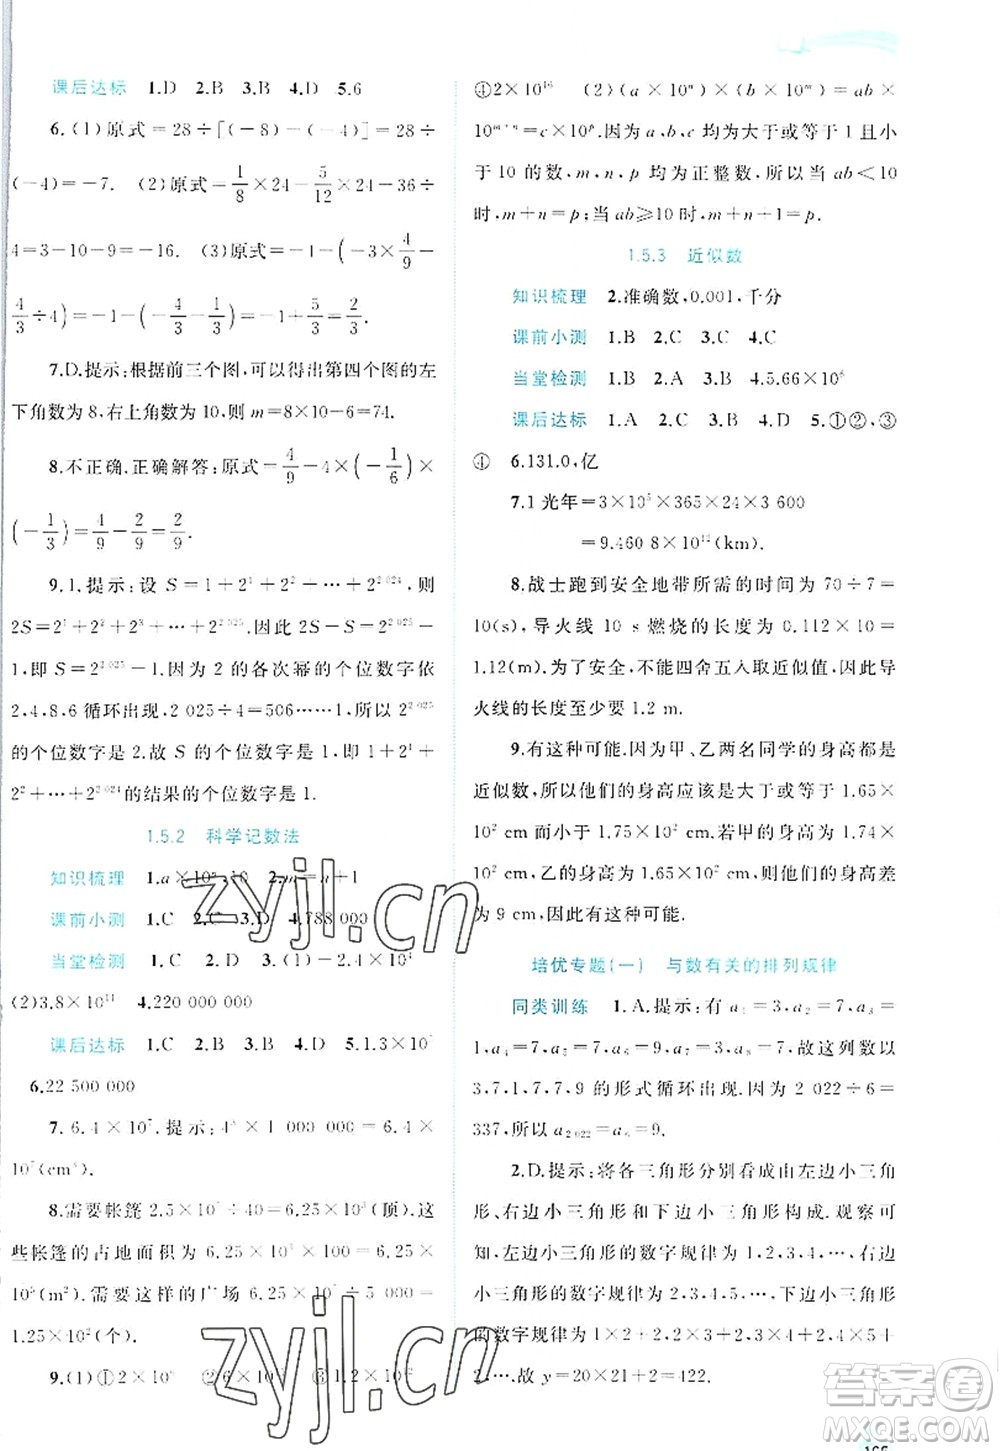 课后达标 1.D 2.B 3.B 4.D 5.6
6.(1)原式=28÷[(-8)-(-4)]=28÷
(-4)=-7. (2)原式=1/8×24-5/12×24-36÷
4=3-10-9=-16. (3)原式=-1-(-3×4/9-
4/3÷4)=-1-(-4/3-1/3)=2/3.
7.D.提示:根据前三个图,可以得出第四个图的左
下角数为8,右上角数为10,则m=8×10-6=74.
8.不正确.正确解答:原式=4/9-4/3×(-1/6)×
(-1/3)=4/9-2/9=2/9.
9.1.提示:设 S=1+2¹+2²+…+2²⁰²⁴,则
2S=2¹+2²+2³+…+2²⁰²⁵.因此 2S-S=2²⁰²⁵-
1,即S=2²⁰²⁵-1.因为2的各次幂的个位数字依
2,4,8,6循环出现,2 025÷4=506……1,所以2²⁰²⁵
的个位数字是2.故S的个位数字是1,即1+2¹+
2²+…+2²⁰²⁴的结果的个位数字是1.
1.5.2 科学记数法
知识梳理 1.a×10ⁿ,10 2.m=n+1
课前小测 1.C 2.C 3.D 4.788 000
当堂检测 1.C 2.D 3.(1)-2.4×10
(2)3.8×10¹¹ 4.220 000 000
课后达标 1.C 2.B 3.B 4.D 5.1.3×10⁷
6.22 500 000
7.6.4×10⁷.提示:4³×1 000 000=6.4×
10⁷(cm³).
8.需要帐篷2.5×10⁷÷40=6.25×10⁵(顶),这
些帐篷的占地面积为6.25×10⁵×100=6.25×
10⁷(m²).需要这样的广场6.25×10⁷÷5 000=
1.25×10⁴(个).
9.(1)①2×10 ②6×10 ③1.2×10
④2×10¹⁶ (2)(a×10ᵐ)×(b×10ⁿ)=ab×
10ᵐ⁺ⁿ=c×10ᵖ.因为a,b,c均为大于或等于1且小
于10的数,m,n,p均为正整数,所以当ab<10
时,m+n=p;当ab≥10时,m+n+1=p.
1.5.3 近似数
知识梳理 2.准确数,0.001,千分
课前小测 1.B 2.C 3.C 4.C
当堂检测 1.B 2.A 3.B 4.5.66×10⁶
课后达标 1.A 2.C 3.B 4.D 5.①②,③
④ 6.131.0,亿
7.1光年=3×10⁵×365×24×3 600
=9.460 8×10¹²(km).
8.战士跑到安全地带所需的时间为70÷7=
10(s),导火线10 s燃烧的长度为0.112×10=
1.12(m).为了安全,不能四舍五入取近似值,因此导
火线的长度至少要1.2 m.
9.有这种可能.因为甲、乙两名同学的身高都是
近似数,所以他们的身高应该是大于或等于1.65×
10² cm而小于1.75×10² cm.若甲的身高为1.74×
10² cm,乙的身高为1.65×10² cm,则他们的身高差
为9 cm,因此有这种可能.
培优专题(一) 与数有关的排列规律
同类训练 1.A.提示:有a₁=3,a₂=7,a₃=
1,a₄=7,a₅=7,a₆=9,a₇=3,a₈=7,故这列数以
3,7,1,7,7,9的形式循环出现.因为2 022÷6=
337,所以a₂₀₂₂=a₆=9.
2.D.提示:将各三角形分别看成由左边小三角
形、右边小三角形和下边小三角形构成.观察可
知,左边小三角形的数字规律为1,2,3,…,右边
小三角形的数字规律为2,3,4,5,…,下边小三角形
的数字规律为1×2+2,2×3+2,3×4+2,4×5+
2,….故y=20×21+2=422.
zyjl.cn
zyjl.cn
答案圈
MXQE.COM